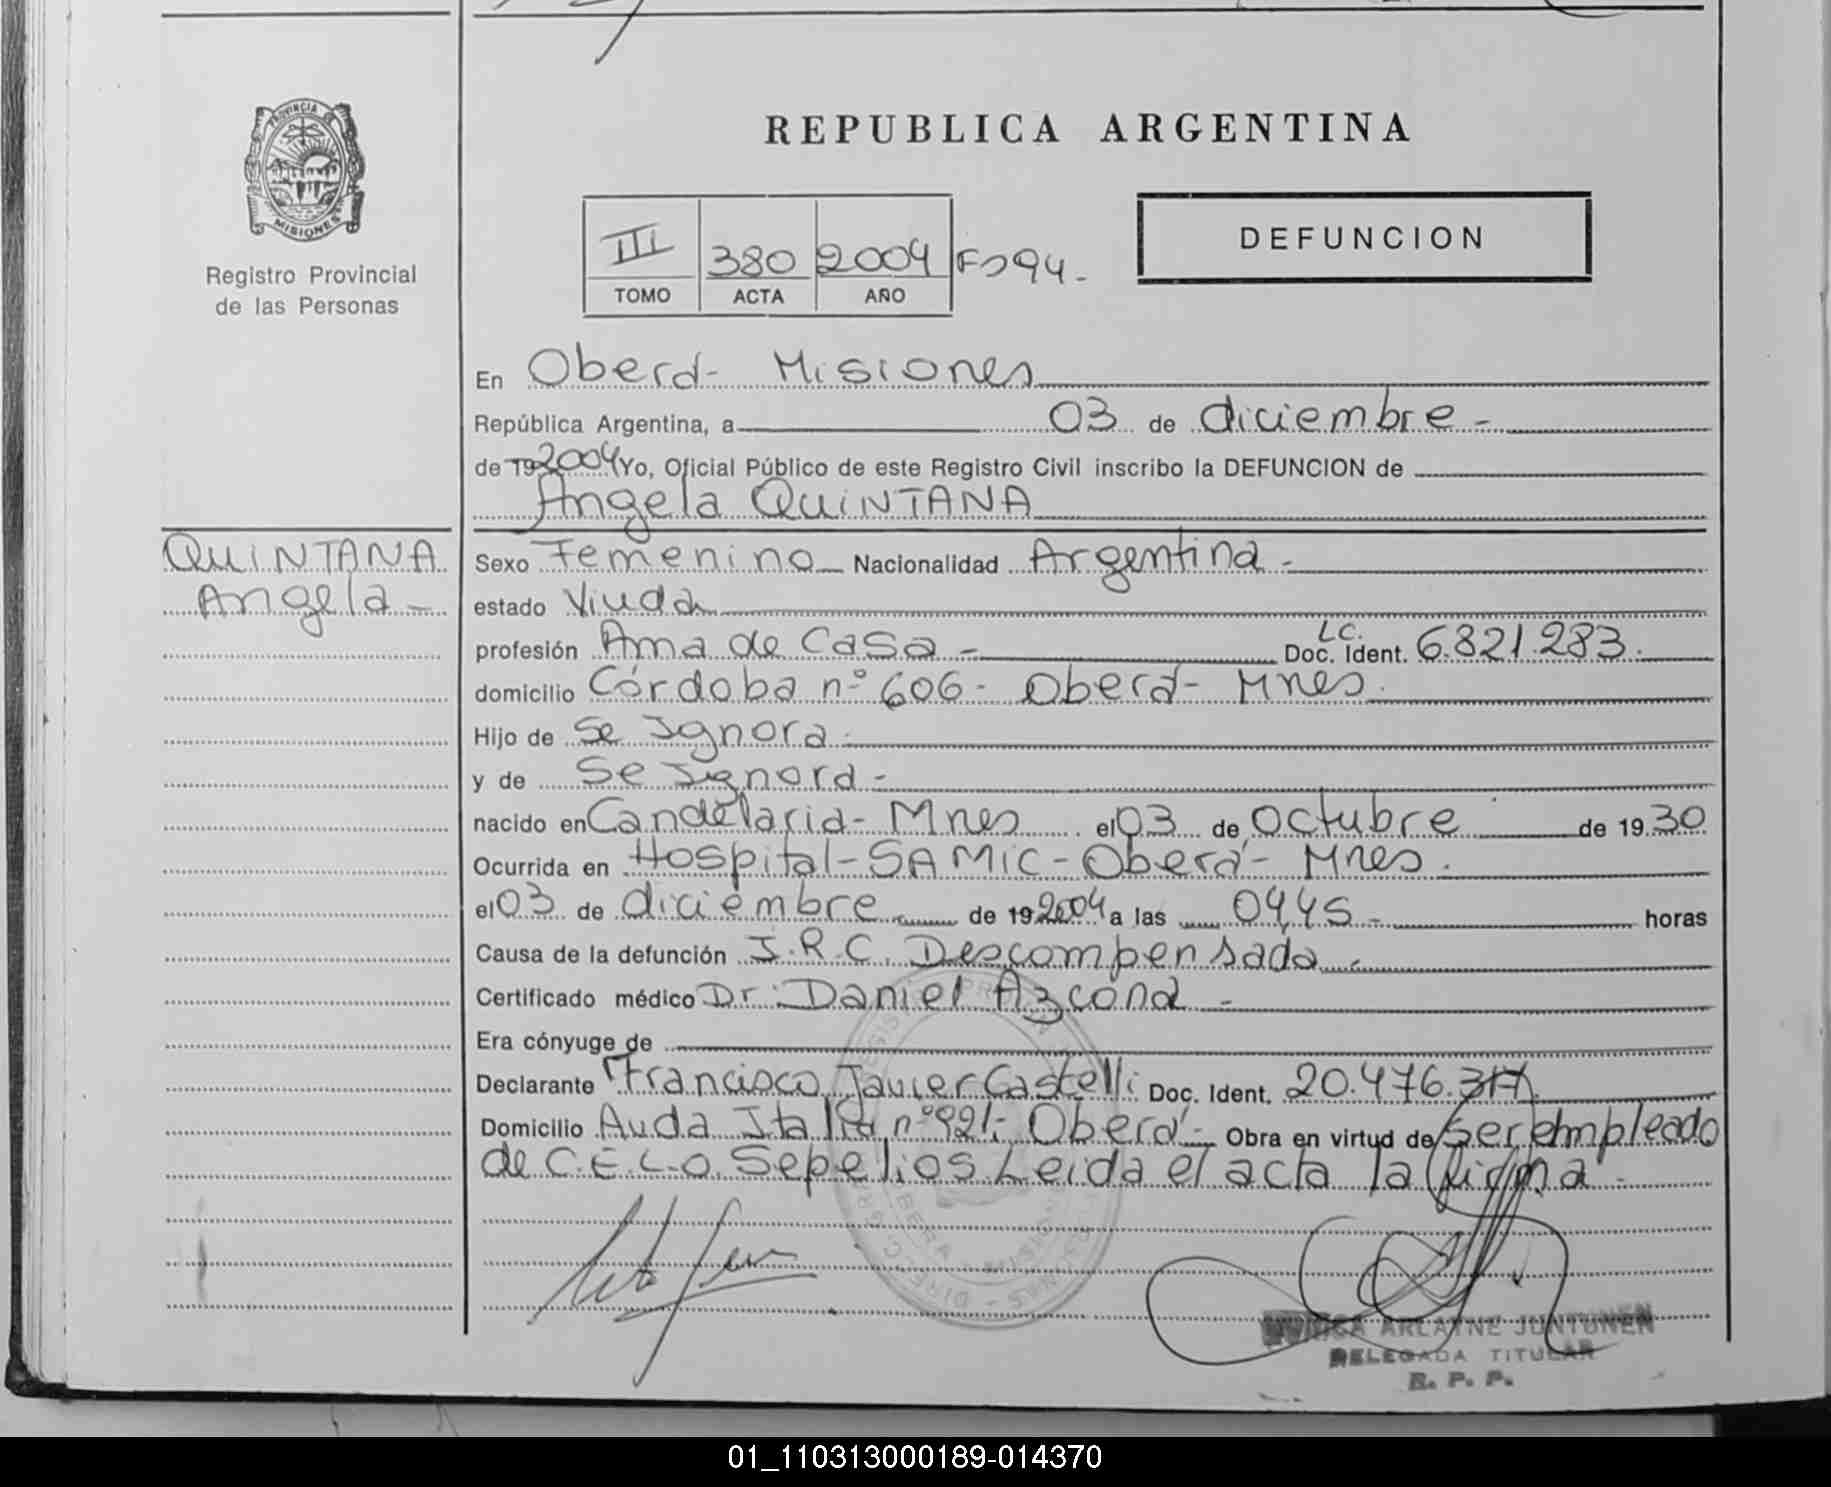 PROVINCIA DE
MISIONES
Registro Provincial
de las Personas
REPUBLICA ARGENTINA
III 380 2004 Fº 94.-
TOMO ACTA AÑO
DEFUNCION
En Oberá- Misiones
República Argentina, a 03 de diciembre -
de 19 2004 Yo, Oficial Público de este Registro Civil inscribo la DEFUNCION de
Angela QUINTANA
QUINTANA
Angela -
Sexo Femenino Nacionalidad Argentina -
estado Viuda
profesión Ama de Casa - LC. Doc. Ident. 6.821.283.
domicilio Córdoba nº 606- Oberá- Mnes.
Hijo de Se Ignora -
y de Se Ignora -
nacido en Candelaria- Mnes el 03 de Octubre de 19 30
Ocurrida en Hospital-SAMIC-Oberá- Mnes.
el 03 de diciembre de 19 2004 a las 04,45 - horas
Causa de la defunción I.R.C. Descompensada -
Certificado médico Dr. Daniel Azcona -
Era cónyuge de
Declarante Francisco Javier Castelli Doc. Ident. 20.476.317
Domicilio Avda Italia nº 921- Oberá- Obra en virtud de Ser empleado
de C.E.L.O. Sepelios. Leida el acta la firma -
ARLAYNE JUNTUNEN
DELEGADA TITULAR
R. P. P.
01_110313000189-014370